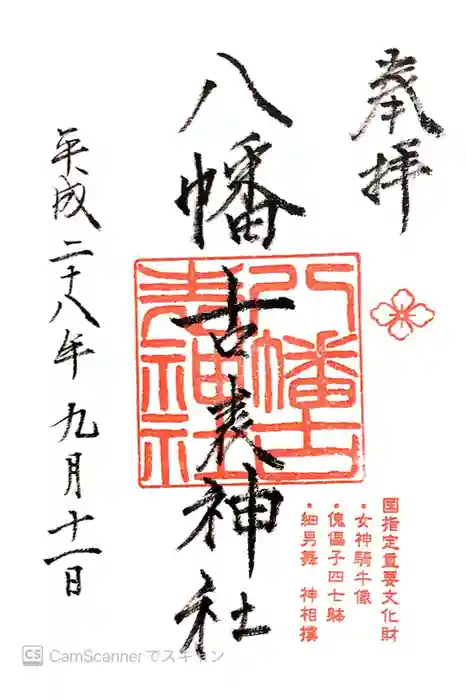 奉拝
八幡古表神社
八幡古表神社
国指定重要文化財
・女神騎牛像
・傀儡子四七躰
・細男舞 神相撲
平成二十八年九月十一日
CS CamScanner でスキャン